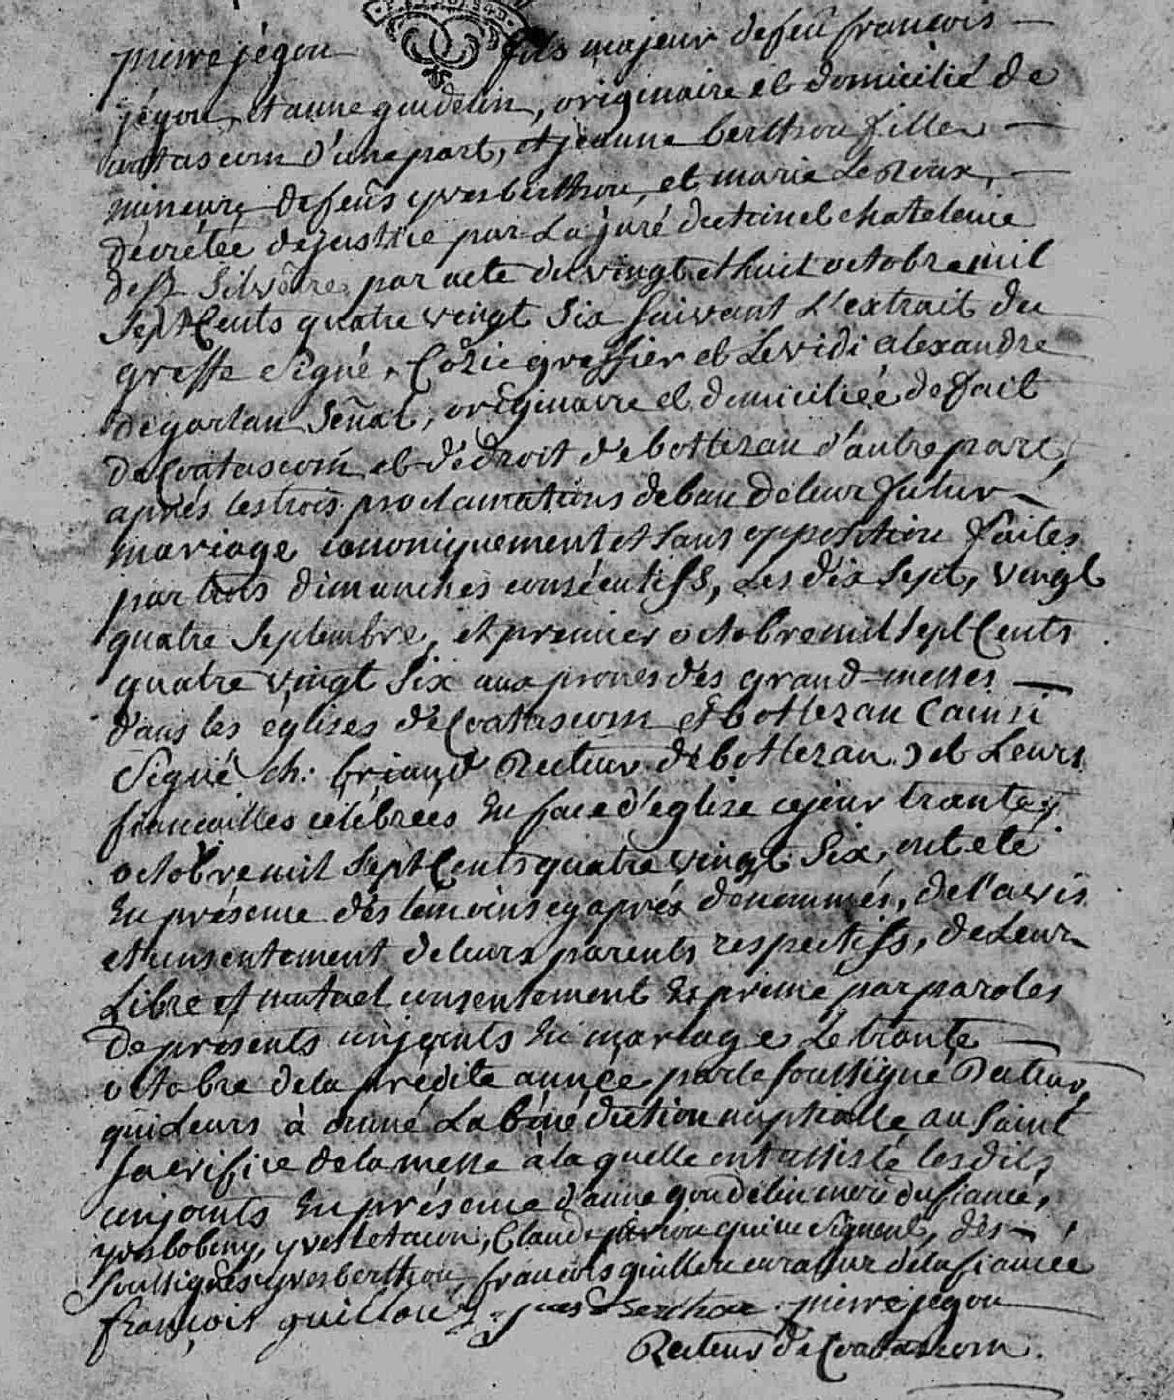 pierre jégou fils majeur de feu francois
jégou, et anne goudelin, originaire et domicilié de
coatascorn d'une part, et jeanne berthou fille
mineure de feûs yves berthou, et marie Le Roux,
décrétée de justice par La juré du tinel chatelenie
de St Silvêtre par acte du vingt et huit octobre mil
Sept Cents quatre vingt Six Suivant L'extrait du
greffe Signé, greffier et Le vidi alexandre
Señal, originaire et domiciliée de fait
de Coatascorn et de droit de bottezan d'autre part,
aprés les trois proclamations de ban de leur futur
mariage canoniquement et Sans opposition faites
par trois dimanches consécutifs, Les dix Sept, vingt
quatre Septembre, et premier octobre mil Sept Cents
quatre vingt Six aux prones des grand-messes
dans les églises de Coatascorn et bottezan (ainsi
Signé ch: briand Recteur de bottezan) et Leurs
fiancailles célébrées En face d'eglise ce jour trante
octobre mil Sept Cents quatre vingt Six, ont eté
En présence des témoins cy aprés dénommés, de l'avis
et consentement de leurs parents respectifs, de Leur
Libre et mutuel consentement Exprimé par paroles
de présents conjoints En mariage Le trante
octobre de la prédite année par le soussigné Recteur,
qui leurs à donné La bénédiction nuptialle au Saint
Sacrifice de la messe à la quelle ont assisté les dits
conjoints En présence d'anne goudelin mere du fiancé,
yves lobeny, yves, Claude qui ne Signent, des
Soussignés yves berthou, francois guillou curateur de la fiancée
françois guillou yves Berthou pierre jegou
Recteur de Coatascorn.